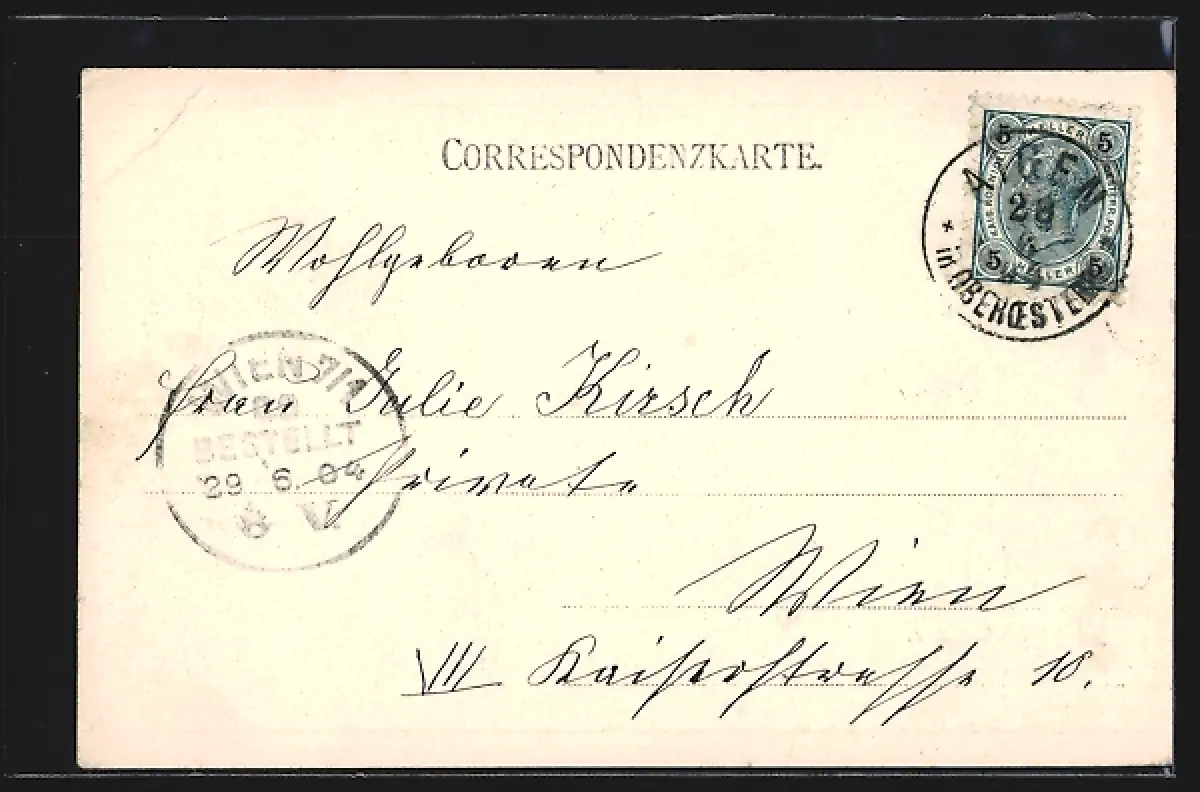 CORRESPONDENZKARTE.
5 HELLER 5
5 HELLER 5
AIGEN
28
* in OBERŒSTER
Wohlgeboren
WIEN 7/1
BESTELLT
29 6. 04
8 V.
Frau Julie Kirsch
Private
Wien
VII Kaiserstrasse 10.